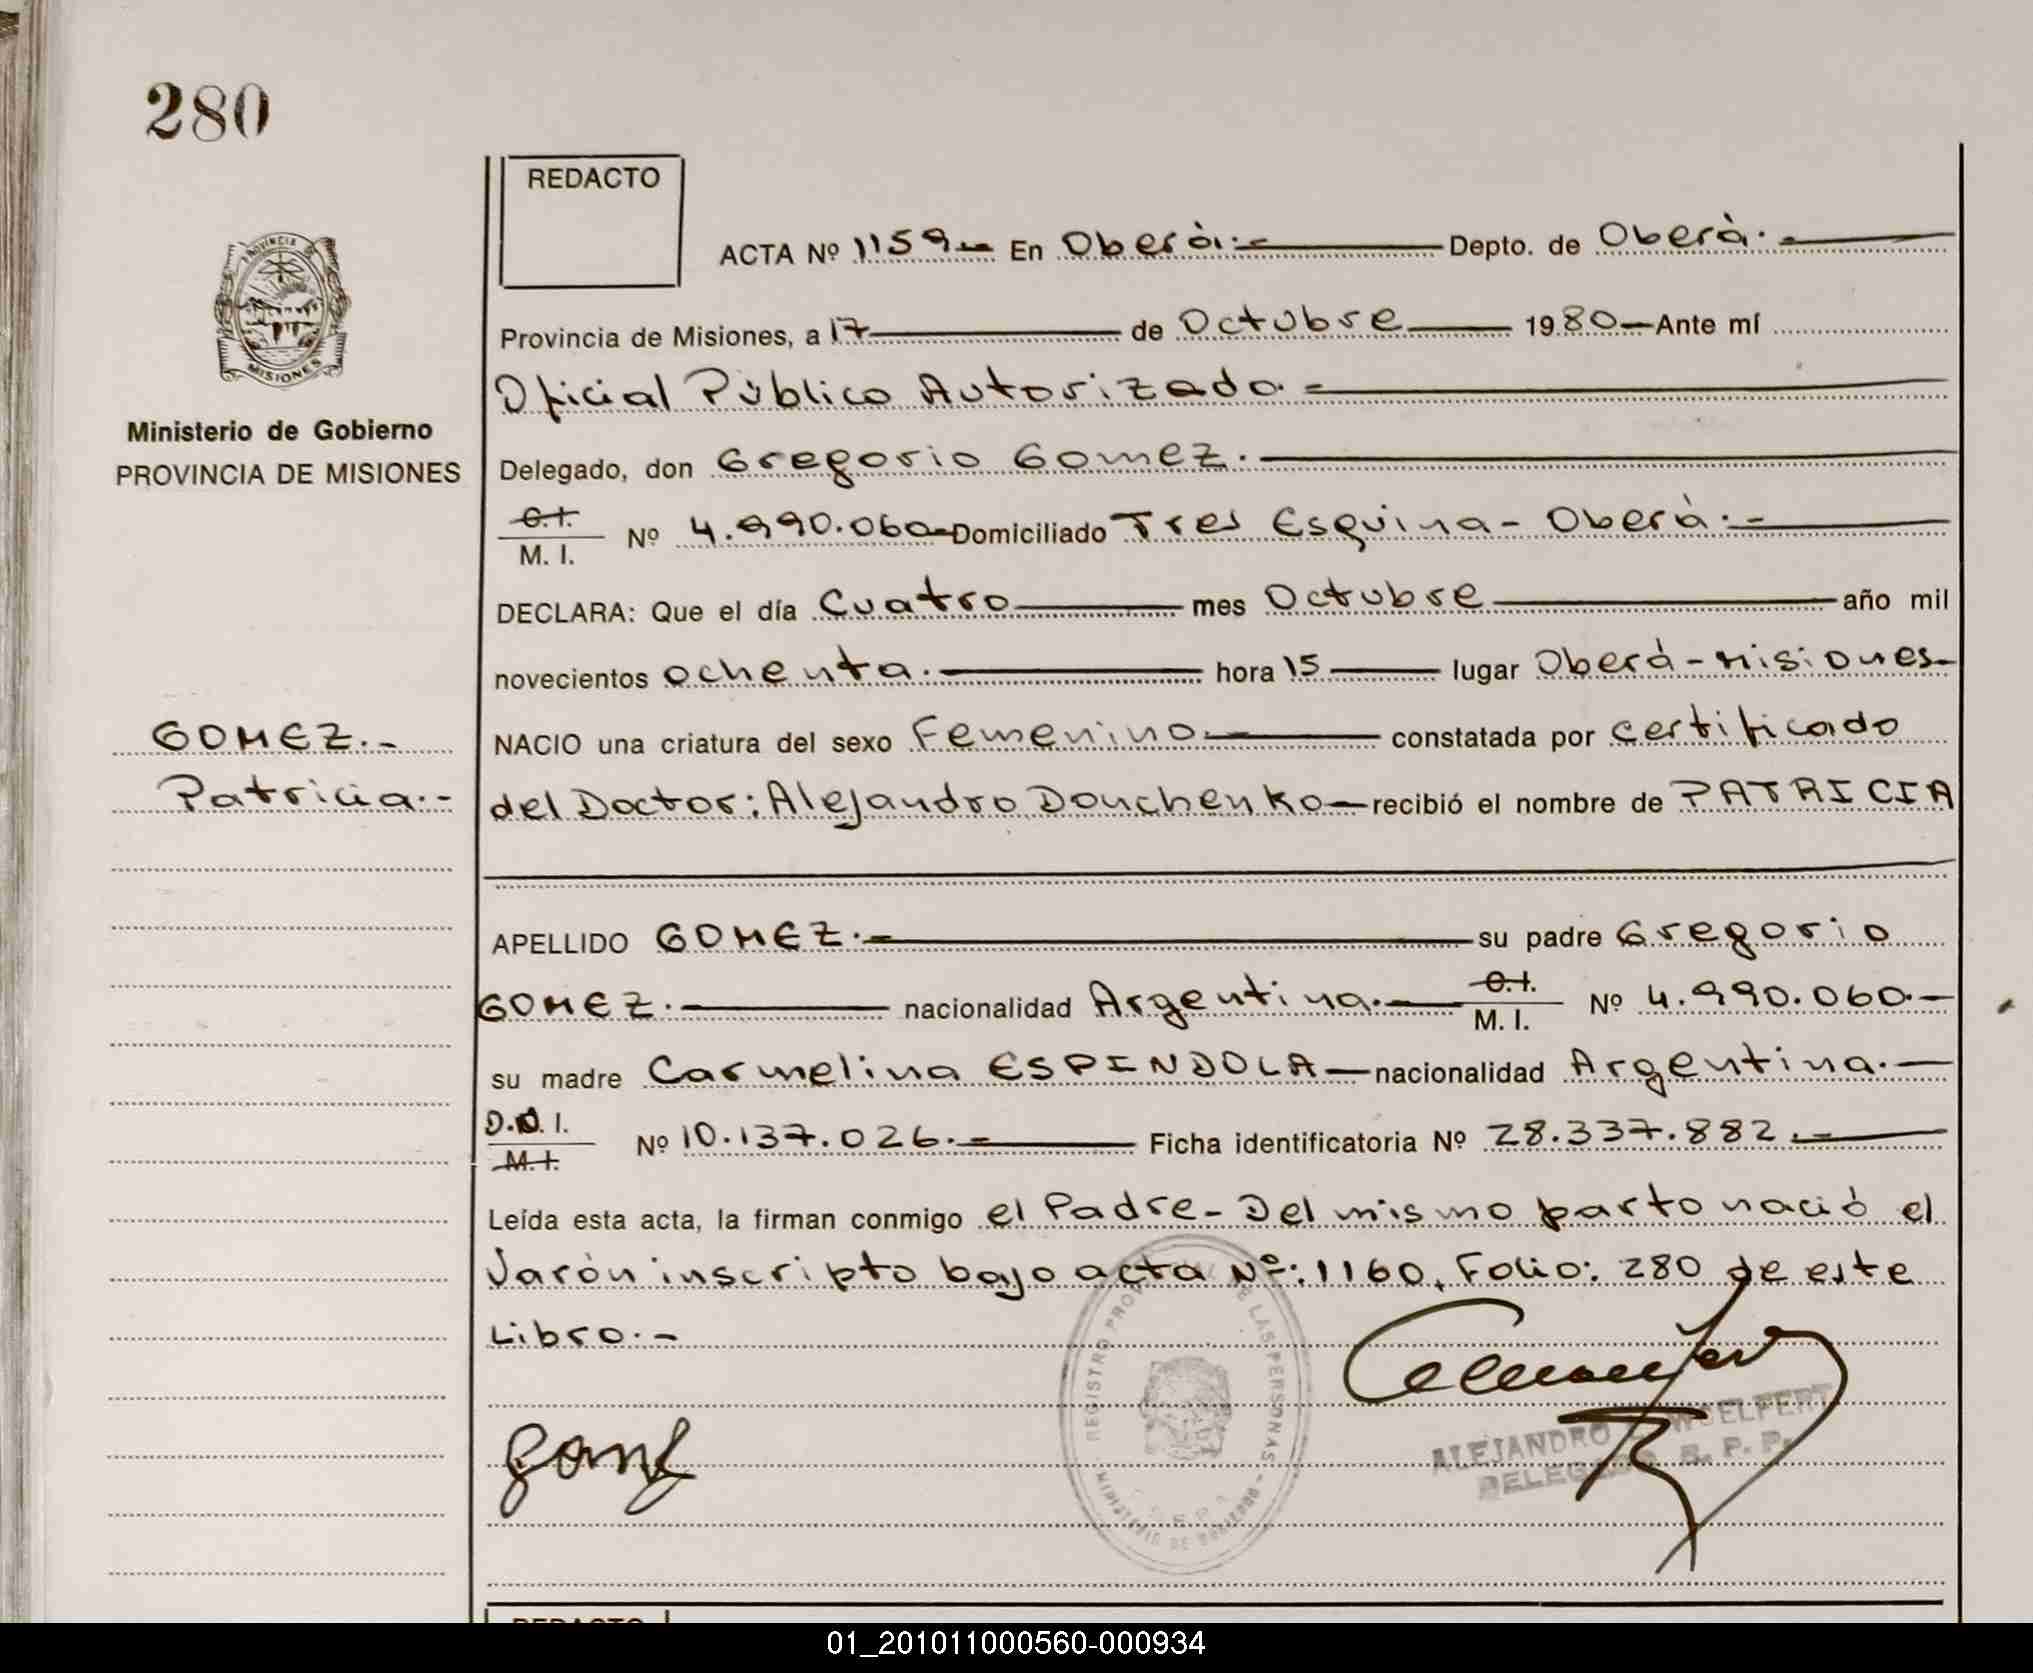 280
REDACTO
ACTA Nº 1159 En Oberá.- Depto. de Oberá.-
Provincia de Misiones, a 17 de Octubre 1980 Ante mí
Oficial Público Autorizado.-
Ministerio de Gobierno
PROVINCIA DE MISIONES
PROVINCIA D
MISIONES
Delegado, don Gregorio Gomez.
C.I. M. I. Nº 4.990.060 Domiciliado Tres Esquina - Oberá.-
DECLARA: Que el día Cuatro mes Octubre año mil
novecientos ochenta. hora 15 lugar Oberá - Misiones-
GOMEZ.-
Patricia.-
NACIO una criatura del sexo Femenino constatada por certificado
del Doctor: Alejandro Donchenko recibió el nombre de PATRICIA
APELLIDO GOMEZ.- su padre Gregorio
GOMEZ. nacionalidad Argentina.- C.I. M. I. Nº 4.990.060.-
su madre Carmelina ESPINDOLA nacionalidad Argentina.-
D.N.I. M.I. Nº 10.137.026.- Ficha identificatoria Nº 28.337.882.-
Leída esta acta, la firman conmigo el Padre - Del mismo parto nació el
Varón inscripto bajo acta Nº: 1160, Folio: 280 de este
Libro.-
REGISTRO DE LAS PERSONAS - MINISTERIO DE GOBIERNO
ALEJANDRO
DELEGADO R. P. P.
REDACTO
01_201011000560-000934